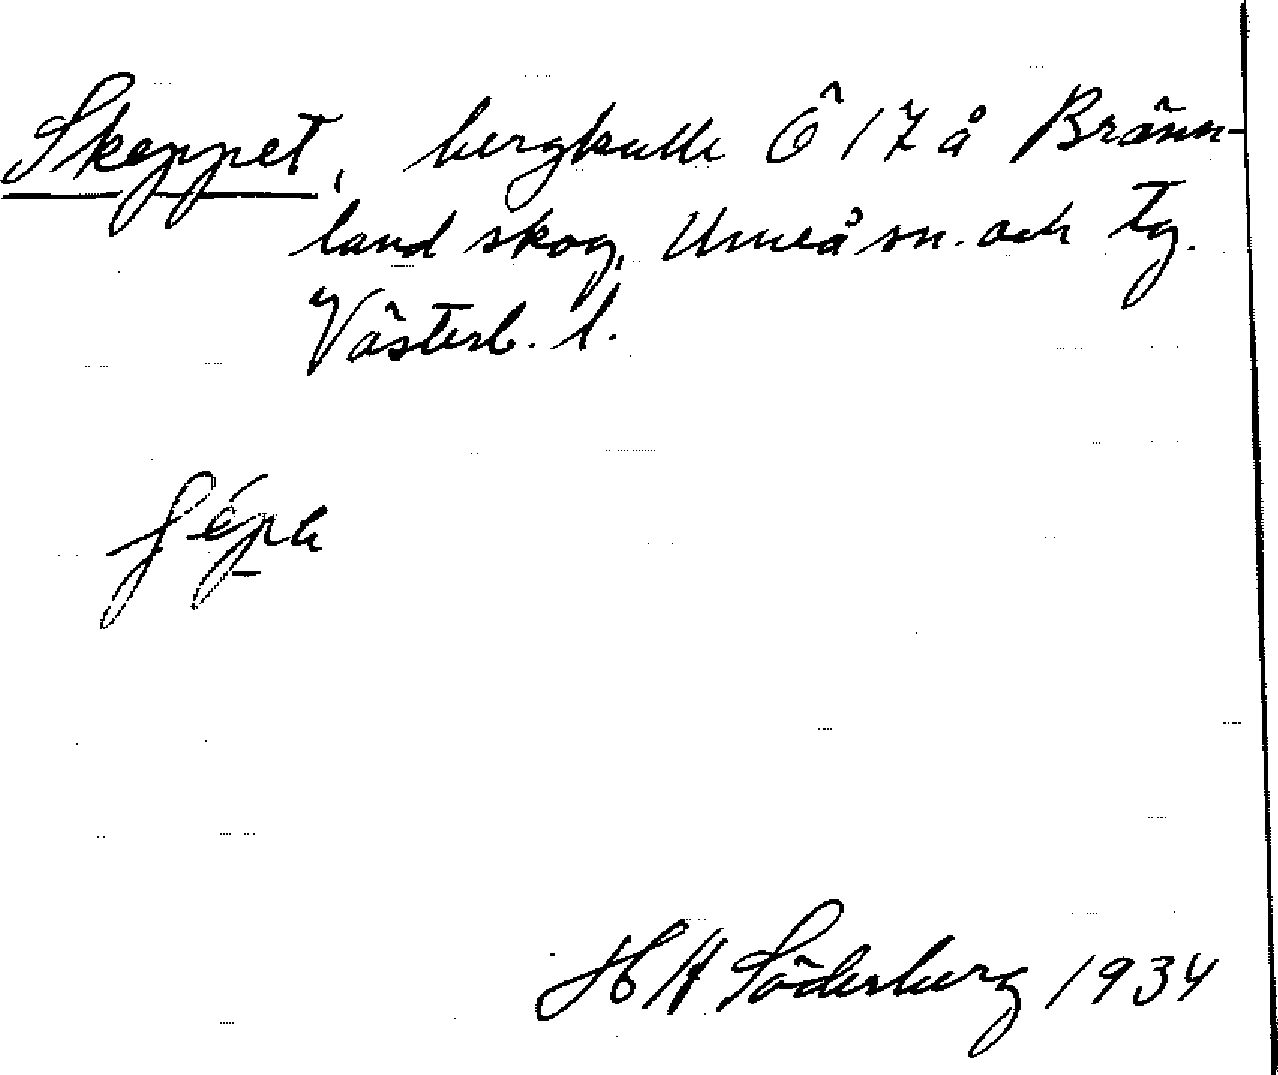 Skeppet, bergkulle Ö 17 å Bränn-
land skog, Umeå sn. och tg.
Västerb. l.
H A Söderberg 1934